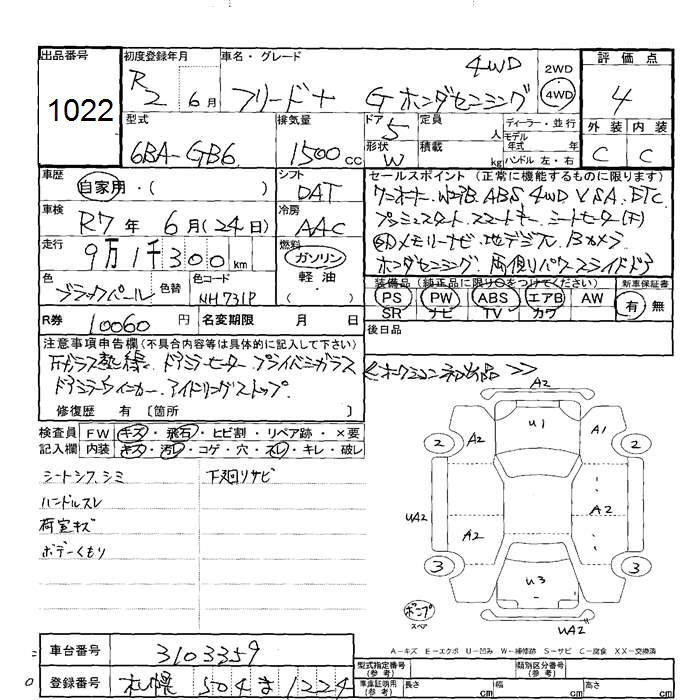 出品番号 初度登録年月 車名・グレード 2WD 評価点
1022 R2 6月 フリード+ G ホンダセンシング 4WD 4WD 4
型式 排気量 ドア 定員 ディーラー・並行 外装 内装
6BA-GB6 1500cc 5 人 モデル年式 年 C C
形状 積載
W kg ハンドル 左・右
車歴 シフト セールスポイント(正常に機能するものに限ります)
自家用・( ) DAT ワンオーナー、W2B. ABS 4WD VSA ETC
車検 冷房
R7年 6月(24日) AAC プッシュスタート スマートキー シートヒーター(F)
走行 燃料
9万1千300km ガソリン SDメモリーナビ、地デジTV、Bカメラ
軽油
( ) ホンダセンシング、両側パワースライドドア
色 色替 色コード
ブラックパール NH731P
装備品(純正品に限り○をつけてください) 新車保証書
PS PW ABS エアB AW 有 無
SR ナビ TV カワ
R券 10060円 名変期限 月 日 後日品
注意事項申告欄(不具合内容等は具体的に記入して下さい)
Fガラス熱線 ドアミラーヒーター プライバシーガラス
ドアミラーウィンカー、アイドリングストップ、
修復歴 有 〔箇所 〕
<オークション初出品>>
検査員 FW キズ・飛石・ヒビ割・リペア跡・×要
記入欄 内装 キズ・汚レ・コゲ・穴・スレ・キレ・破レ
シートシワ、シミ 下廻りサビ
ハンドルスレ
荷室キズ
ボデーくもり
A2
U1
A2 A1
2 2
UA2 A2 A2
3 3
U3
UA2
ボンプ
スペア
A-キズ E-エクボ U-凹み W-補修跡 S-サビ C-腐食 XX-交換済
車台番号 3103359
登録番号 札幌 504 ま 1224
型式指定番号(参考) 類別区分番号(参考)
車庫証明用(参考) 長さ cm 幅 cm 高さ cm